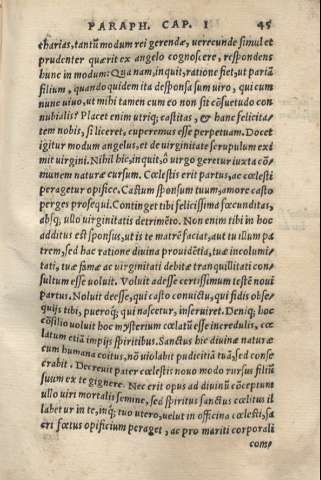 PARAPH. CAP. I 45
charias, tantũ modum rei gerendæ, uerecunde simul et
prudenter quærit ex angelo cognoscere, respondens
hunc in modum: Qua nam, inquit, ratione fiet, ut pariã
filium, quando quidem ita desponsa sum uiro, qui cum
nunc uiuo, ut mihi tamen cum eo non sit cõsuetudo con
nubialis? Placet enim utriq; castitas, & hanc felicita/
tem nobis, si liceret, cuperemus esse perpetuam. Docet
igitur modum angelus, et de uirginitate scrupulum exi
mit uirgini. Nihil hic, inquit, ô uirgo geretur iuxta cõ/
munem naturæ cursum. Cœlestis erit partus, ac cœlesti
peragetur opifice. Castum sponsum tuum, amore casto
perges prosequi. Continget tibi felicissima fœcunditas,
absq; ullo uirginitatis detrimẽto. Non enim tibi in hoc
additus est sponsus, ut is te matrẽ faciat, aut tu illum pa
trem, sed hac ratione diuina prouidẽtia, tuæ incolumi/
tati, tuæ famæ ac uirginitati debitæ tranquillitati con/
sultum esse uoluit. Voluit adesse certissimum testẽ noui
partus. Noluit deesse, qui casto conuictu, qui fidis obse/
quijs tibi, pueroq; qui nascetur, inseruiret. Deniq; hoc
cõsilio uoluit hoc mysterium cœlatũ esse incredulis, cœ
latum etiã impijs spiritibus. Sanctus hic diuinæ naturæ
cum humana coitus, nõ uiolabit pudicitiã tuã, sed conse
crabit. Decreuit pater cœlestis nouo modo rursus filiũ
suum ex te gignere. Nec erit opus ad diuinũ cõceptum
ullo uiri mortalis semine, sed spiritus sanctus cœlitus il
labetur in te, inq; tuo utero, uelut in officina cœlesti, sa
cri fœtus opificium peraget, ac pro mariti corporali
com/